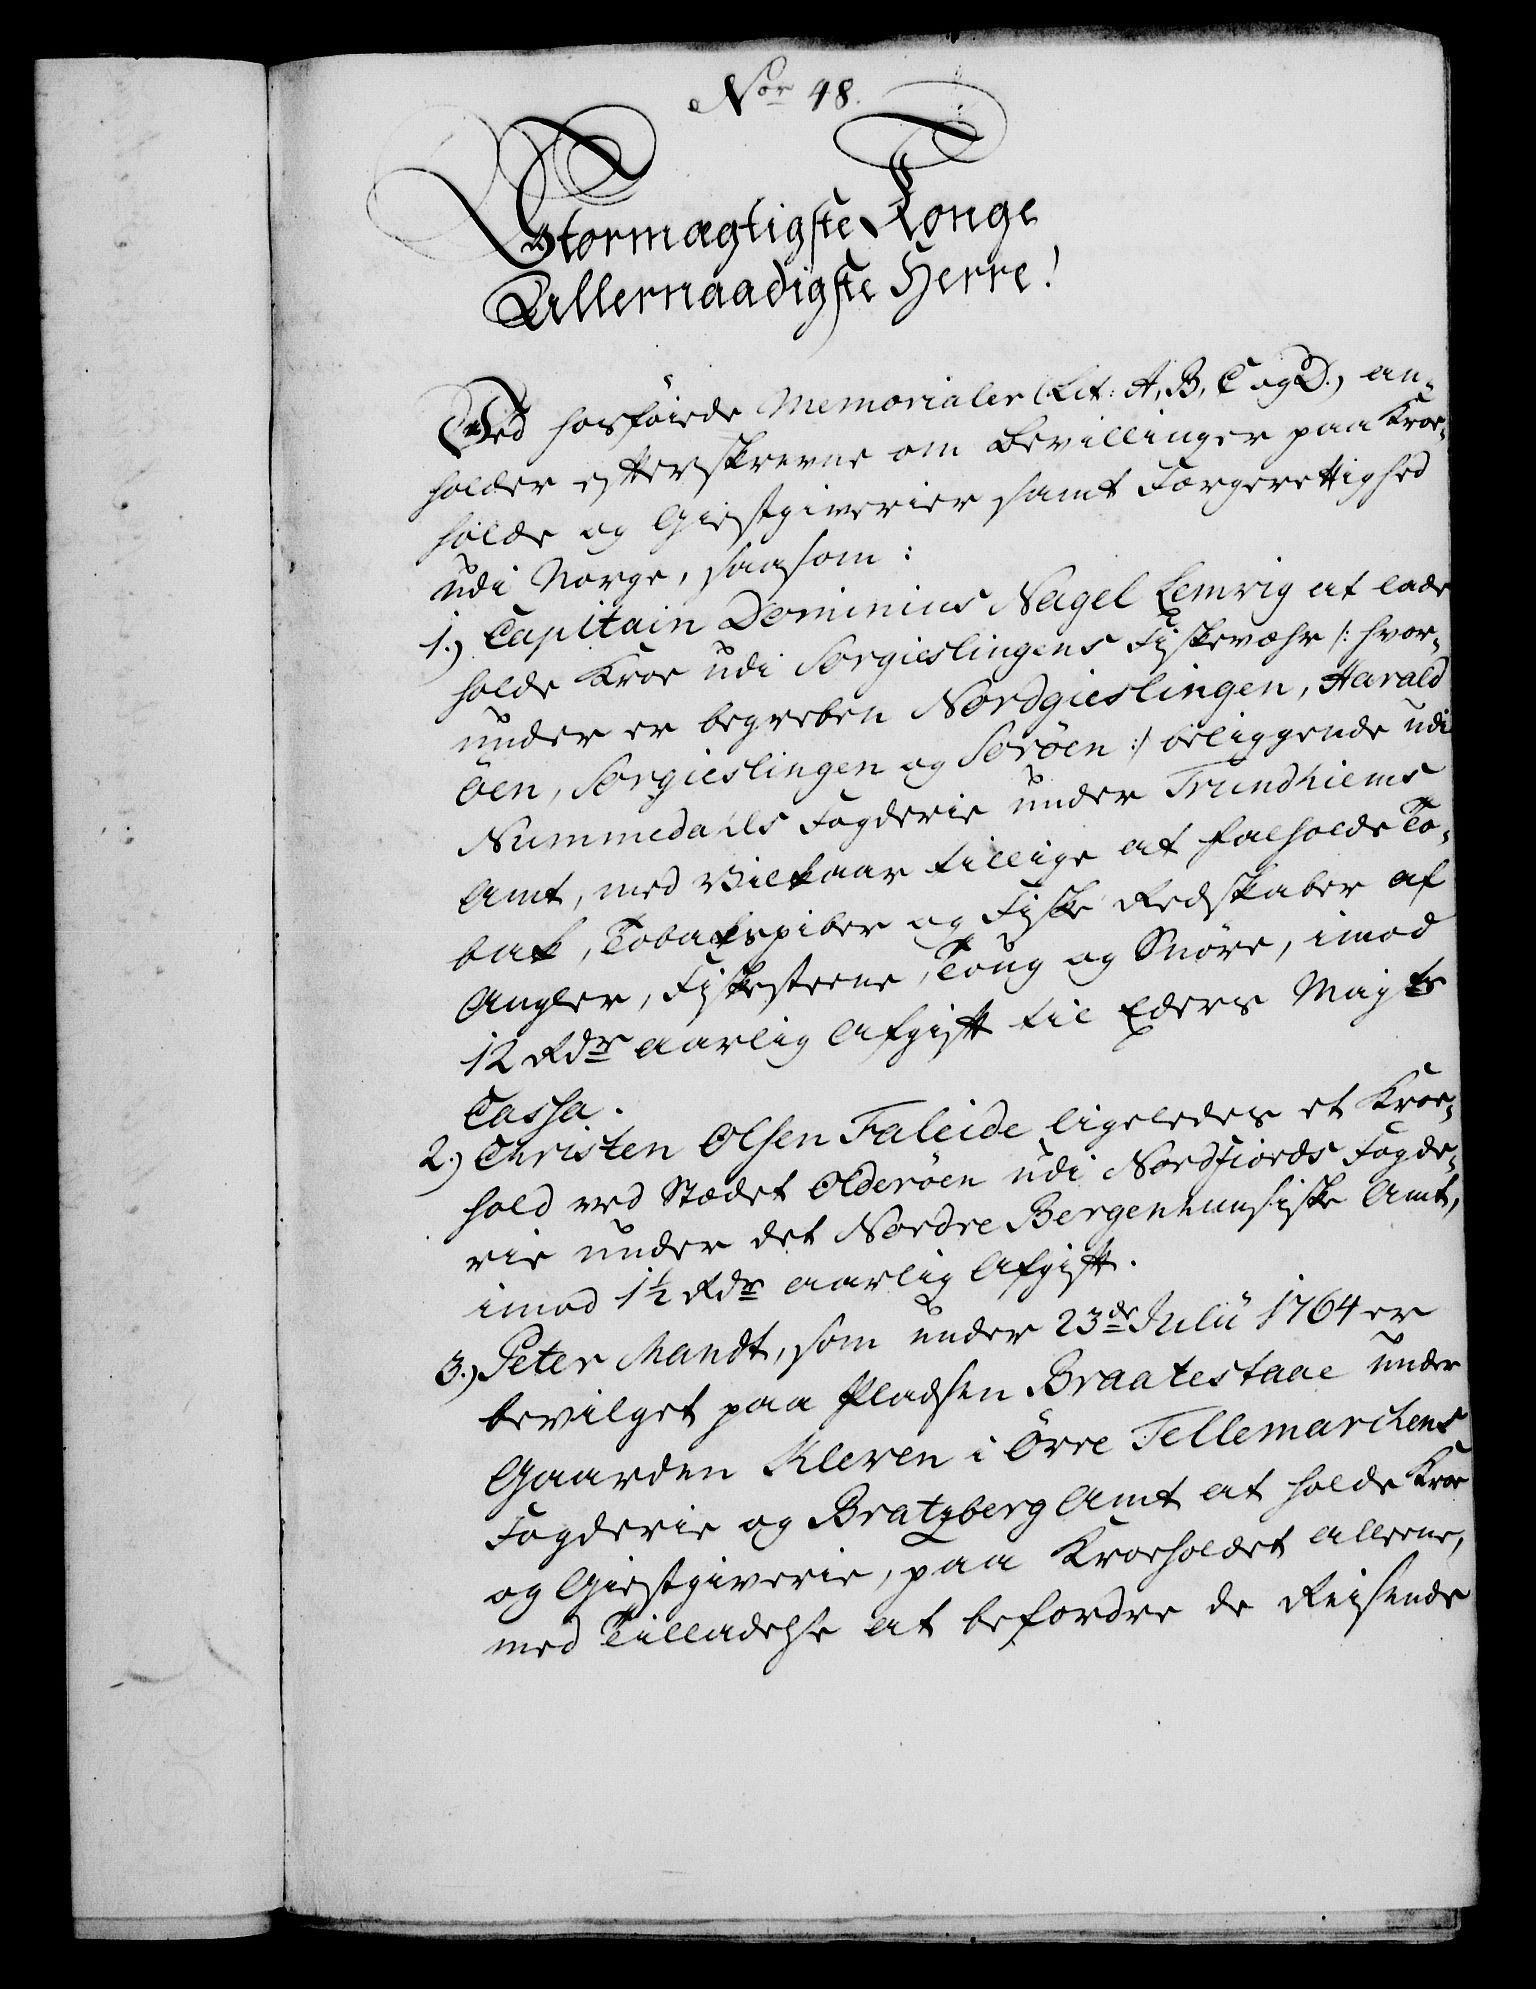 Nor 48.
Stormægtigste Konge
Allernaadigste Herre!
Ved hosføiede Memorialer (Lit: A, B, C og D.) an-
holder efterskrevne om Bevillinger paa Kroe-
holde og Giestgiverier samt Færgerettighed
udi Norge, saasom:
1.) Capitain Dominius Nagel Lemvig at lade
holde Kroe udi Sørgieslingens Fiskevæhr /: hvor-
under er begreben Nordgieslingen, Harald
öen, Sörgieslingen og Sorøen :/ beliggende udi
Nummedahls Fogderie under Trundhiems
Amt, med Vilkaar tillige at falholde To-
bak, Tobakspiber og Fiske Redskaber af
Angler, Fiskesteene, Toug og Snöre, imod
12 Rdr aarlig Afgift til Eders Mayts
Cassa.
2.) Christen Olsen Faleide ligeledes et Kroe-
hold ved Stædet Olderöen udi Nordfiords Fogde-
rie under det Nordre Bergenhuusiske Amt,
imod 1½ Rdr aarlig Afgift.
3.) Peter Mandt, som under 23de Julii 1764 er
bevilget paa Pladsen Braatestaae under
Gaarden Kleven i Övre Tellemarchens
Fogderie og Bratzberg Amt at holde Kroe
og Giestgiverie, paa Kroeholdet alleene,
med Tilladelse at befordre de Reisende